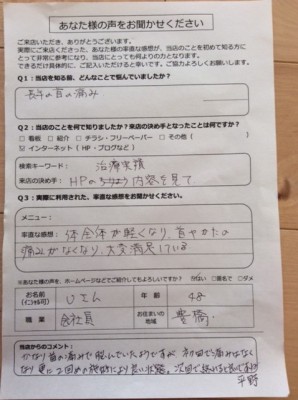 あなた様の声をお聞かせください
ご来店いただき、ありがとうございます。
実際にご来店くださった、あなた様の率直な感想が、当店のことを初めて知る方に
とって非常に参考になり、当店にとっても何よりの力となります。
できるだけ具体的に、ご記入いただけると幸いです。ご協力よろしくお願いします。
Q1:当店を知る前、どんなことで悩んでいましたか?
首の痛み
Q2:当店のことを何で知りましたか?来店の決め手となったことは何ですか?
□看板 □紹介 □チラシ・フリーペーパー □その他( )
☑インターネット(HP・ブログなど)
検索キーワード: 治療実績
来店の決め手: HPの 内容を見て
Q3:実際に利用された、率直な感想をお聞かせください。
メニュー:
率直な感想: 体全体が軽くなり、首やかたの
痛みがなくなり、大変満足している
※あなた様の声を、ホームページなどでご紹介してもよろしいですか? 良い □匿名で □ダメ
お名前
(イニシャル可)
Uさん
年齢
48
職業
会社員
お住まいの
地域
豊橋
当店からのコメント:
かなり首の痛みで悩んでいたようですが、初回で痛みはなく
なり 更に2回めの施術により良い状態。次回で
平野